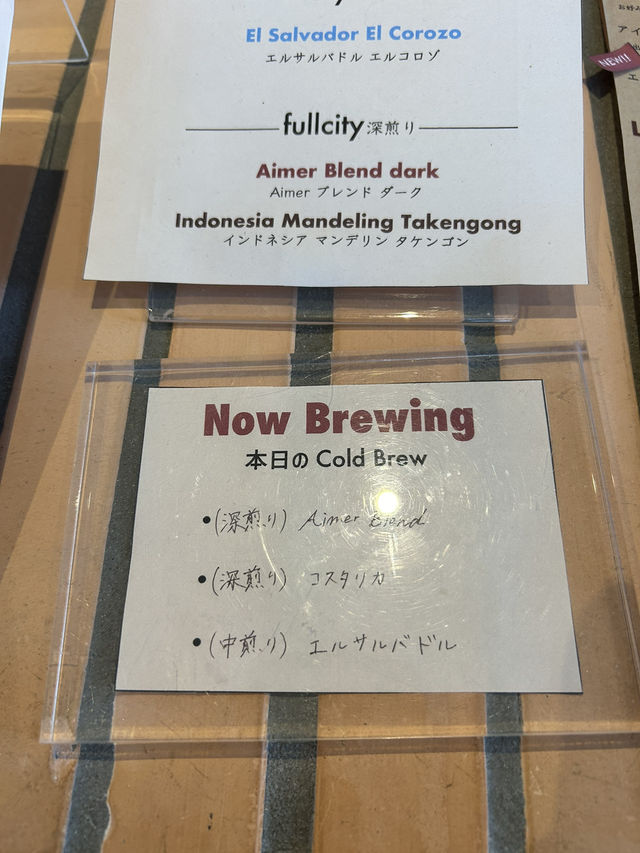 El Salvador El Corozo
エルサルバドル エルコロゾ
fullcity 深煎り
Aimer Blend dark
Aimer ブレンド ダーク
Indonesia Mandeling Takengong
インドネシア マンデリン タケンゴン
NEW!!
Now Brewing
本日の Cold Brew
•(深煎り) Aimer Blend
•(深煎り) コスタリカ
•(中煎り) エルサルバドル